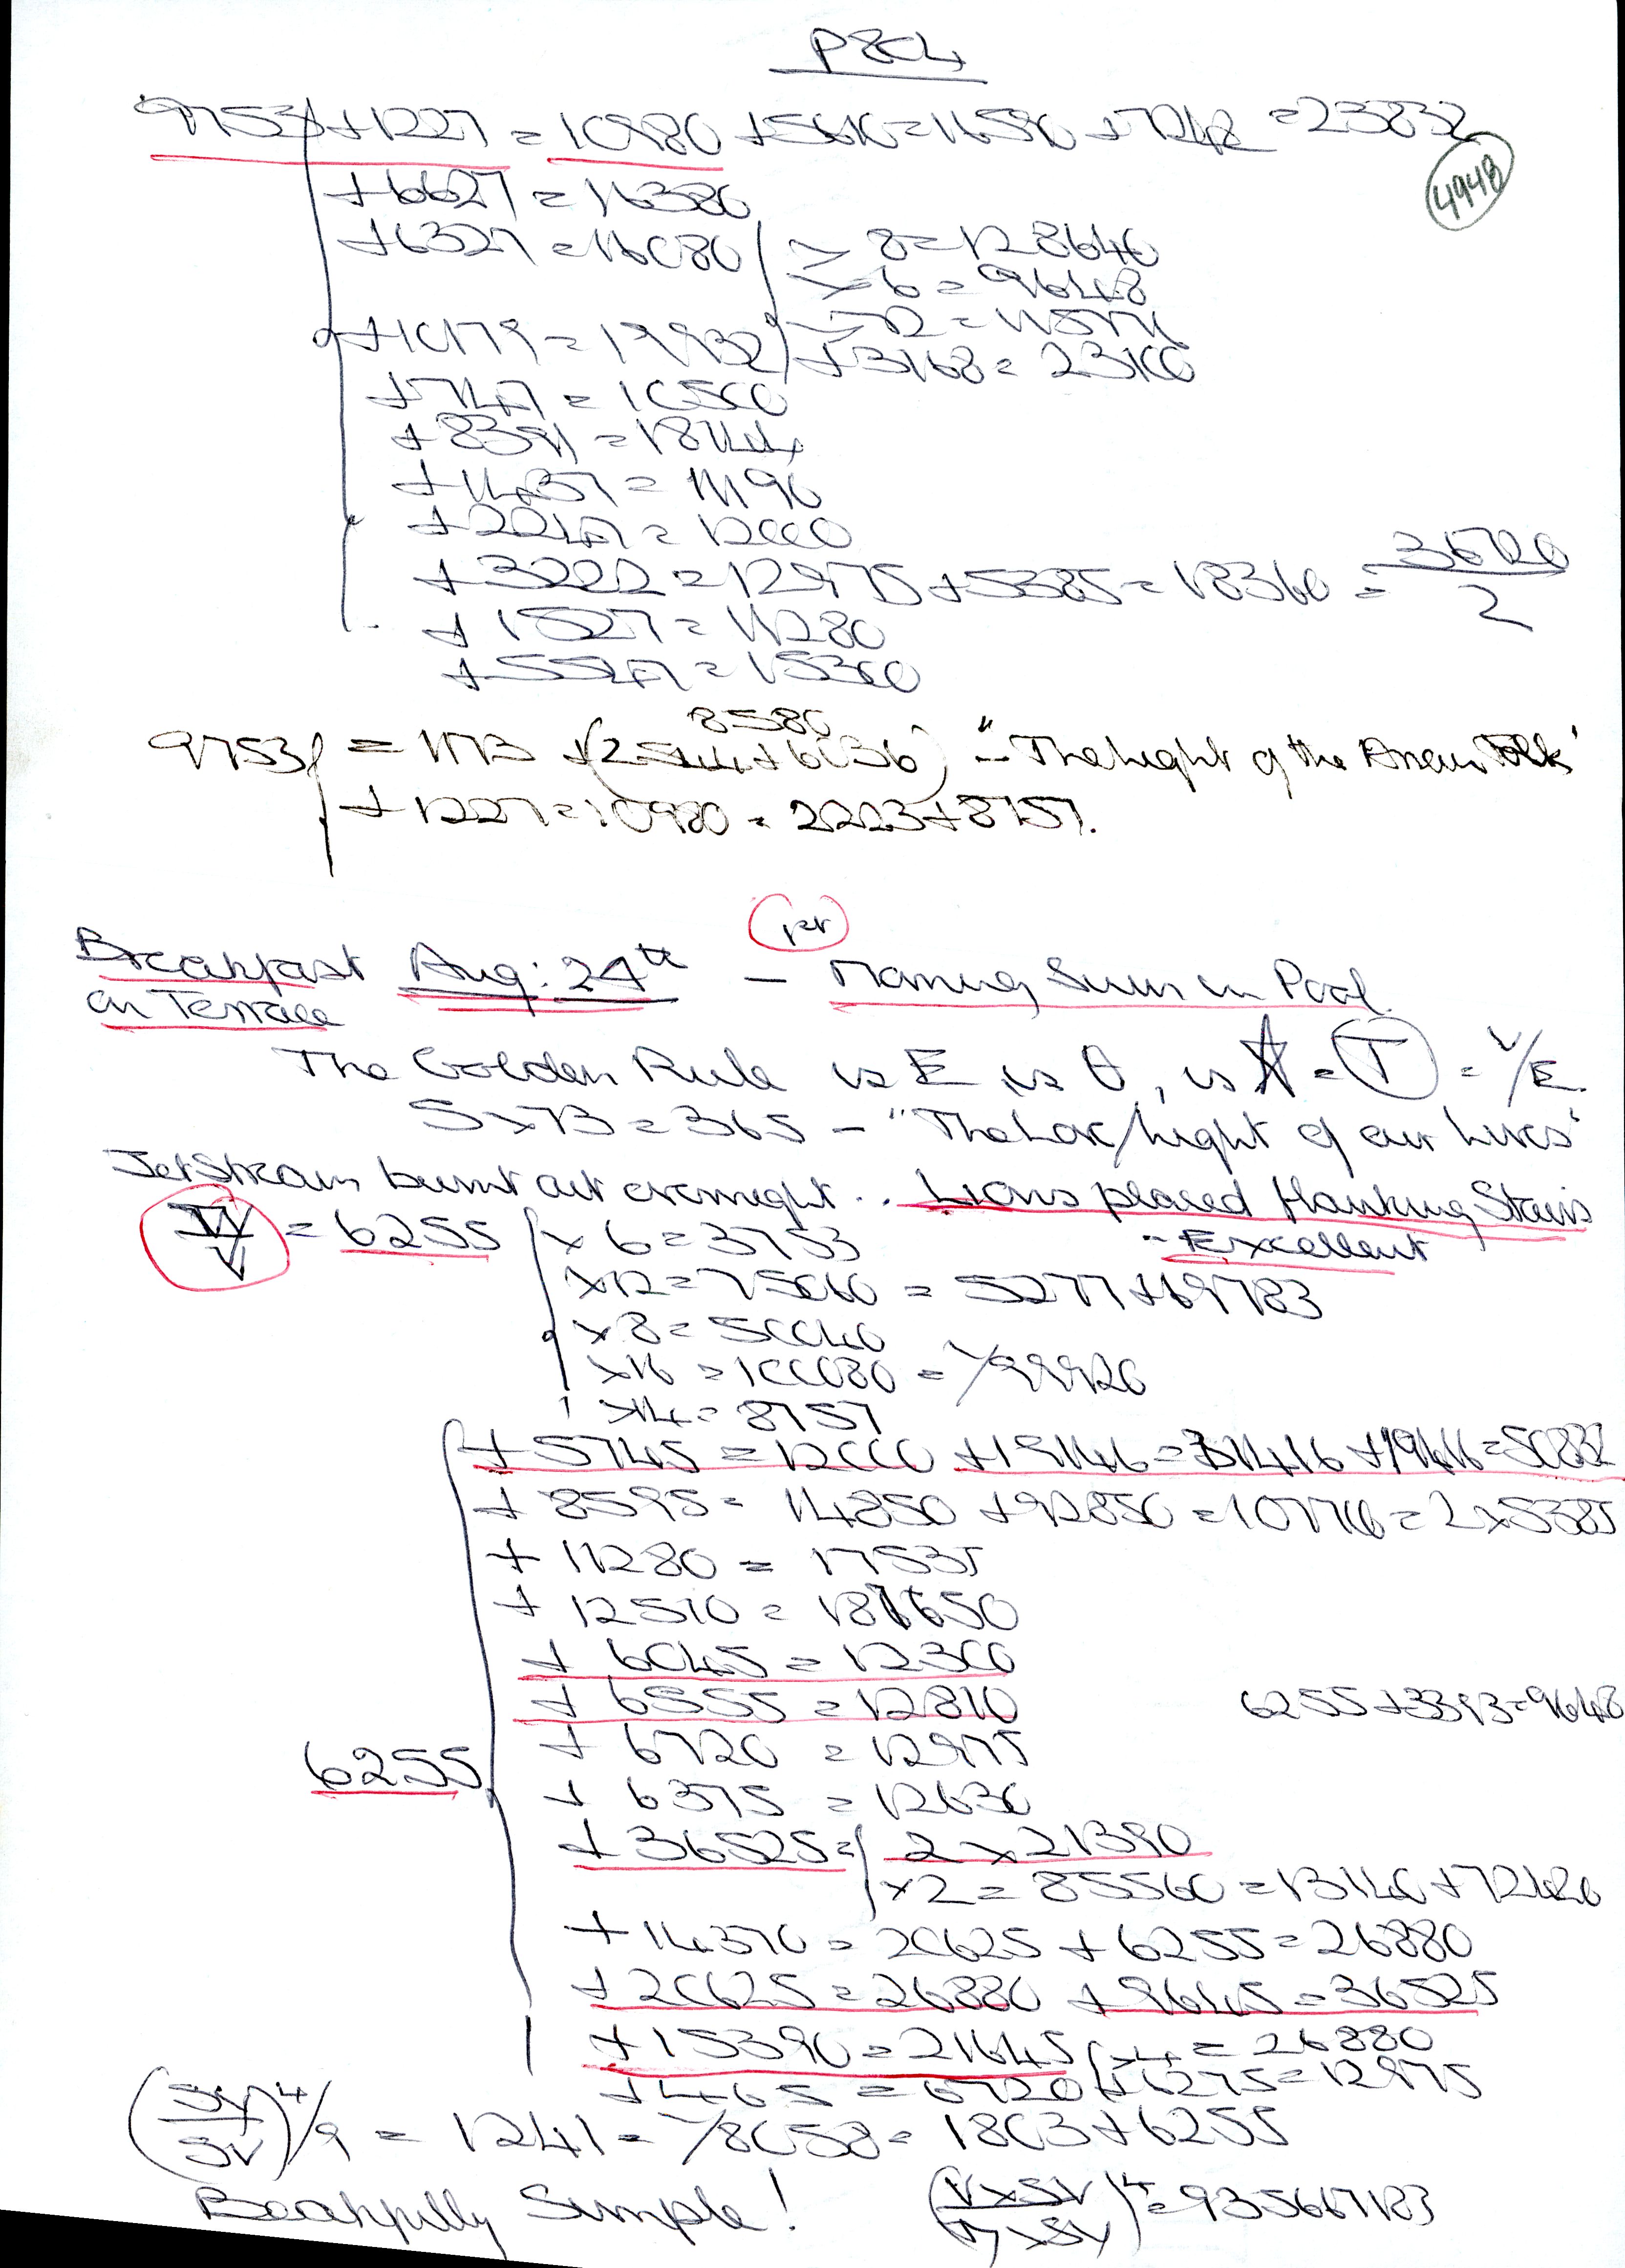 P804
9753 +1227 = 10980 +5610=16590 +7242 =23832
4948
+6627 = 16380
+6327 =16080 × 8=128640
×6 = 9648
+10179 = 19932 +3168= 23100
+747 = 10500
+8391 =18144
+1437= 11190
+2247= 12000
+3222 =12975 +5385=18360 = 36720/2
+1527= 11280
+5547= 15300
8580
9753 = 1173 +(2544+6036) - "The Light of the
+1227=10980 = 2223+8757.
Breakfast Aug: 24th — Morning Swim in Pool.
on Terrace
The Golden Rule is E is θ, is A = T = 1/E.
5×73=365 - "The Love/Light of our Lives"
JetStream burnt out overnight.. Lions placed flanking Stairs
IV/V = 6255 ×6=3753 - Excellent
×12=75060 = 5277+69783
×8= 50040
×16 =100080 = 1/99920
×14= 8757
+5745 =12000 +19416=31416 +19416=50832
+8595= 14850 +92850 =107700=2×5385
+11280 = 17535
+12510=
+6045=12300
+6555=12810
6255+3393=9648
6255
+6720 =12975
+6375 =12630
+36525= 2×21390
×2= 85560 =13140+72420
+14370= 20625 +6255=26880
+20625=26880 +9645=36525
+15390=21645 ×4= 26880
+465 = 6720 +6275=12975
(SY/SV)^4/9 = 1241= 1/8058= 1803+6255
Beautifully Simple! =93567183